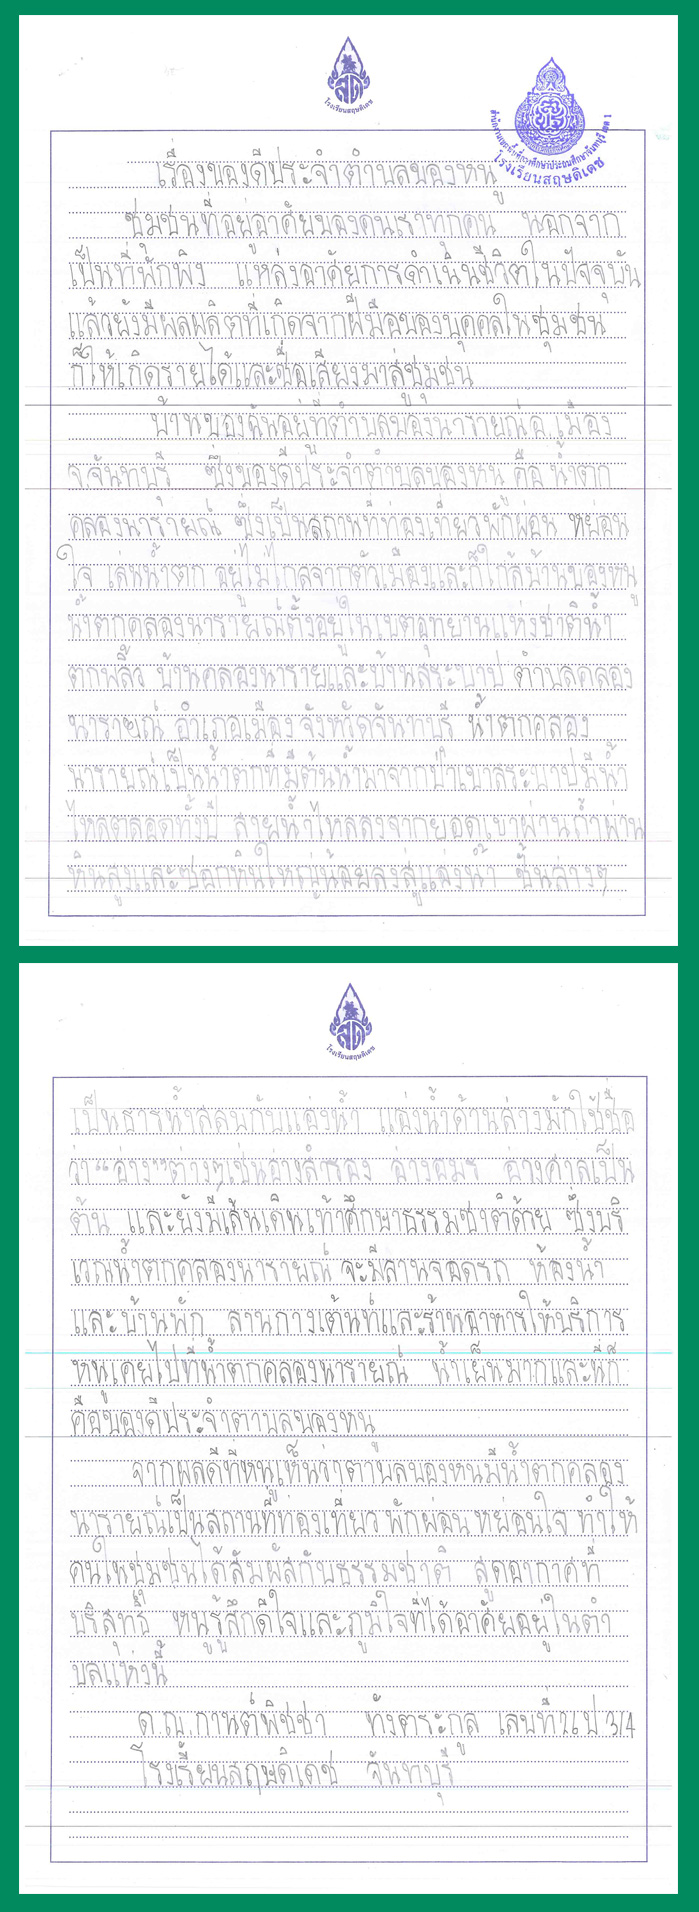 โรงเรียนสฤษดิเดช
สำนักงานเขตพื้นที่การศึกษาประถมศึกษาจันทบุรี เขต 1
โรงเรียนสฤษดิเดช
เรื่องของดีประจำตำบลของหนู
ชุมชนที่อยู่อาศัยของคนเราทุกคน นอกจาก
เป็นที่พักพิง แหล่งอาศัยการดำเนินชีวิตในปัจจุบัน
แล้วยังมีผลผลิตที่เกิดจากฝีมือของบุคคลในชุมชน
ก็ให้เกิดรายได้และชื่อเสียงมาสู่ชุมชน
บ้านของฉันอยู่ที่ตำบลคลองนารายณ์อ.เมือง
จ.จันทบุรี ซึ่งของดีประจำตำบลของหนู คือ น้ำตก
คลองนารายณ์ ซึ่งเป็นสถานที่ท่องเที่ยวพักผ่อน หย่อน
ใจ เล่นน้ำตก อยู่ไม่ไกลจากตัวเมืองและก็ใกล้บ้านของหนู
น้ำตกคลองนารายณ์ตั้งอยู่ในเขตอุทยานแห่งชาติน้ำ
ตกพลิ้ว บ้านคลองนารายและบ้านสระบาป ตำบลคลอง
นารายณ์ อำเภอเมือง จังหวัดจันทบุรี น้ำตกคลอง
นารายณ์เป็นน้ำตกที่มีต้นน้ำมาจากป่าเขาสระบาปมีน้ำ
ไหลตลอดทั้งปี สายน้ำไหลลงจากยอดเขาผ่านถ้ำผ่าน
หินสูงและซอกหินใหญ่น้อยลงสู่แอ่งน้ำ ชั้นล่างๆ
โรงเรียนสฤษดิเดช
เป็นธารน้ำสลับกับแอ่งน้ำ แอ่งน้ำด้านล่างมักใช้ชื่อ
ว่า"อ่าง"ต่างๆเช่นอ่างสำรอง อ่างอมร อ่างศาลเป็น
ต้น และยังมีเส้นเดินเท้าศึกษาธรรมชาติด้วย ซึ่งบริ
เวณน้ำตกคลองนารายณ์ จะมีลานจอดรถ ห้องน้ำ
และบ้านพัก ลานกางเต้นท์และร้านอาหารให้บริการ
หนูเคยไปที่น้ำตกคลองนารายณ์ น้ำเย็นมากและนี่ก็
คือของดีประจำตำบลของหนู
จากผลดีที่หนูเห็นว่าตำบลของหนูมีน้ำตกคลอง
นารายณ์เป็นสถานที่ท่องเที่ยว พักผ่อน หย่อนใจ ทำให้
คนในชุมชนได้สัมผัสกับธรรมชาติ สูดอากาศที่
บริสุทธิ์ หนูรู้สึกดีใจและภูมิใจที่ได้อาศัยอยู่ในตำ
บลแห่งนี้
ด.ญ.กานต์พิชชา ทั้งตระกูล เลขที่ ป 3/4
โรงเรียนสฤษดิเดช จันทบุรี